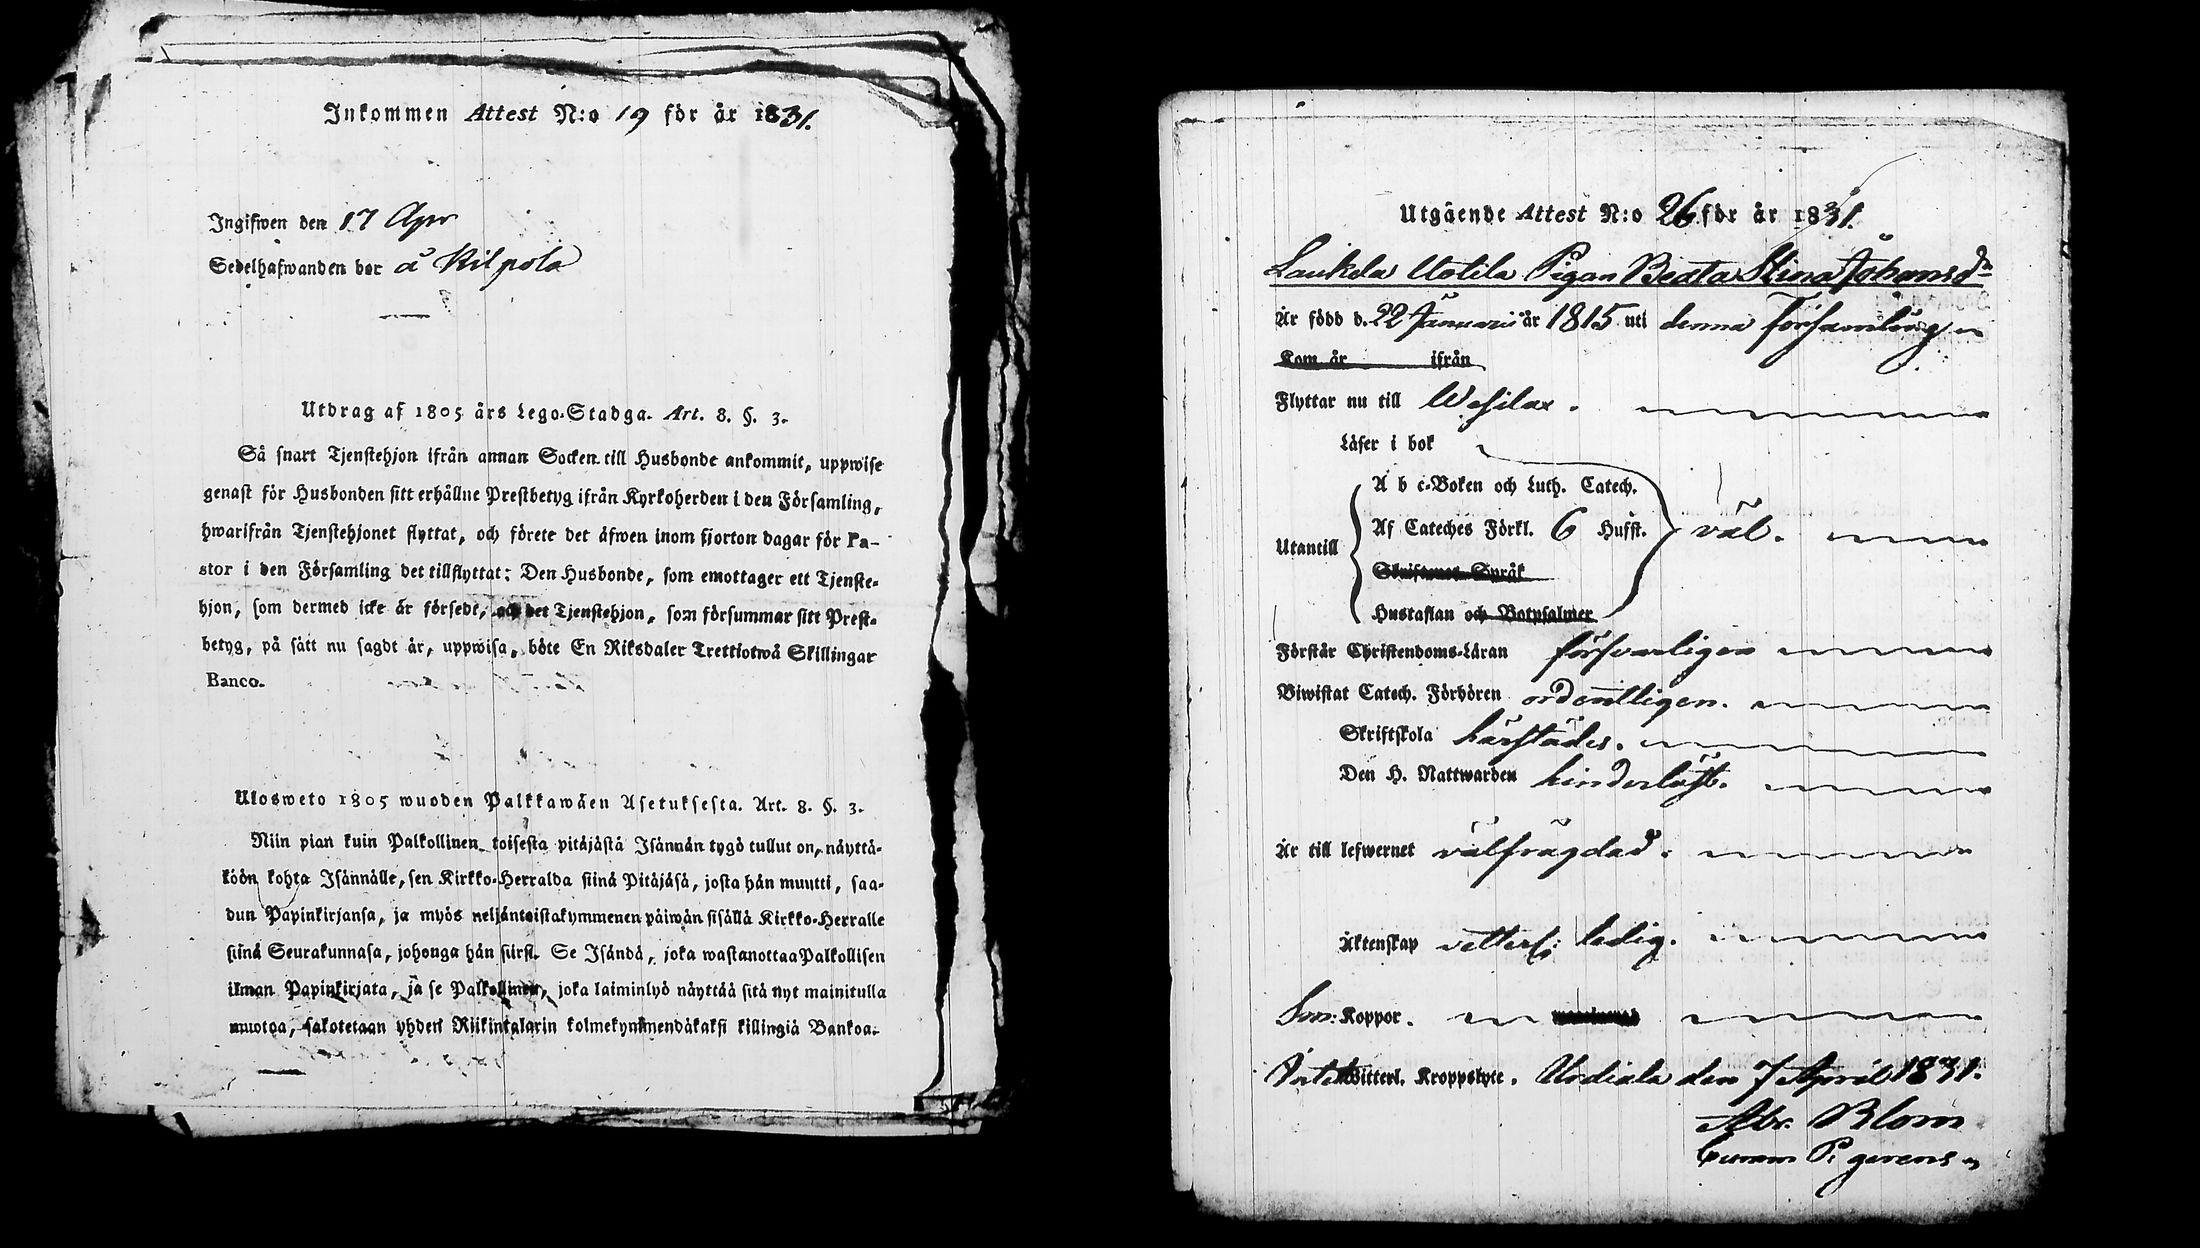 Inkommen Attest N:o 19 för år 1831.
Ingifwen den 17 Apr
Sedelhafwanden bor å Kilpola
Utdrag af 1805 års Lego-Stadga. Art. 8. §. 3.
Så snart Tjenstehjon ifrån annan Socken till Husbonde ankommit, uppwise
genast för Husbonden sitt erhållne Prestbetyg ifrån Kyrkoherden i den Församling,
hwarifrån Tjenstehjonet flyttat, och förete det äfwen inom fjorton dagar för Pa-
stor i den Församling det tillflyttat: Den Husbonde, som emottager ett Tjenste-
hjon, som dermed icke är försedt, och det Tjenstehjon, som försummar sitt Prest-
betyg, på sätt nu sagdt är, uppwisa, böte En Riksdaler Trettiotwå Skillingar
Banco.
Ulosweto 1805 wuoden Palkkawäen Asetuksesta. Art. 8. §. 3.
Niin pian kuin Palkollinen toisesta pitäjästä Isännän tygö tullut on, näyttä-
köön kohta Isännälle, sen Kirkko-Herralda siinä Pitäjäsä, josta hän muutti, saa-
dun Papinkirjansa, ja myös neljäntoistakymmenen päiwän sisällä Kirkko-Herralle
siinä Seurakunnasa, johonga hän siirst. Se Isändä, joka wastanottaa Palkollisen
ilman Papinkirjata, ja se Palkollinen, joka laiminlyö näyttää sitä nyt mainitulla
muotoa, sakotetaan yhden Riikintalarin kolmekymmendäkaksi killingiä Bankoa.
Utgående Attest N:o 26 för år 1831.
Laukela Uotila Pigan Beata Stina Johansdr
Är född d. 22 Januarii år 1815 uti denna Församling
Kom år ifrån
Flyttar nu till Wesilax.
Läser i bok
A b c-Boken och Luth. Catech.
Utantill Af Cateches Förkl. 6 Hufst. väl.
Skriftenes Språk
Hustaflan och Botpsalmer
Förstår Christendoms-Läran försvarligen
Biwistat Catech. Förhören ordentligen.
Skriftskola härstädes.
Den H. Nattwarden hinderlöst.
Är till lefwernet välfrägdad.
Äktenskap vetterl: ledig.
Koppor.
Witterl. Kroppslyte. Urdiala den 7 April 1831.
Abr. Blom
P: gerens